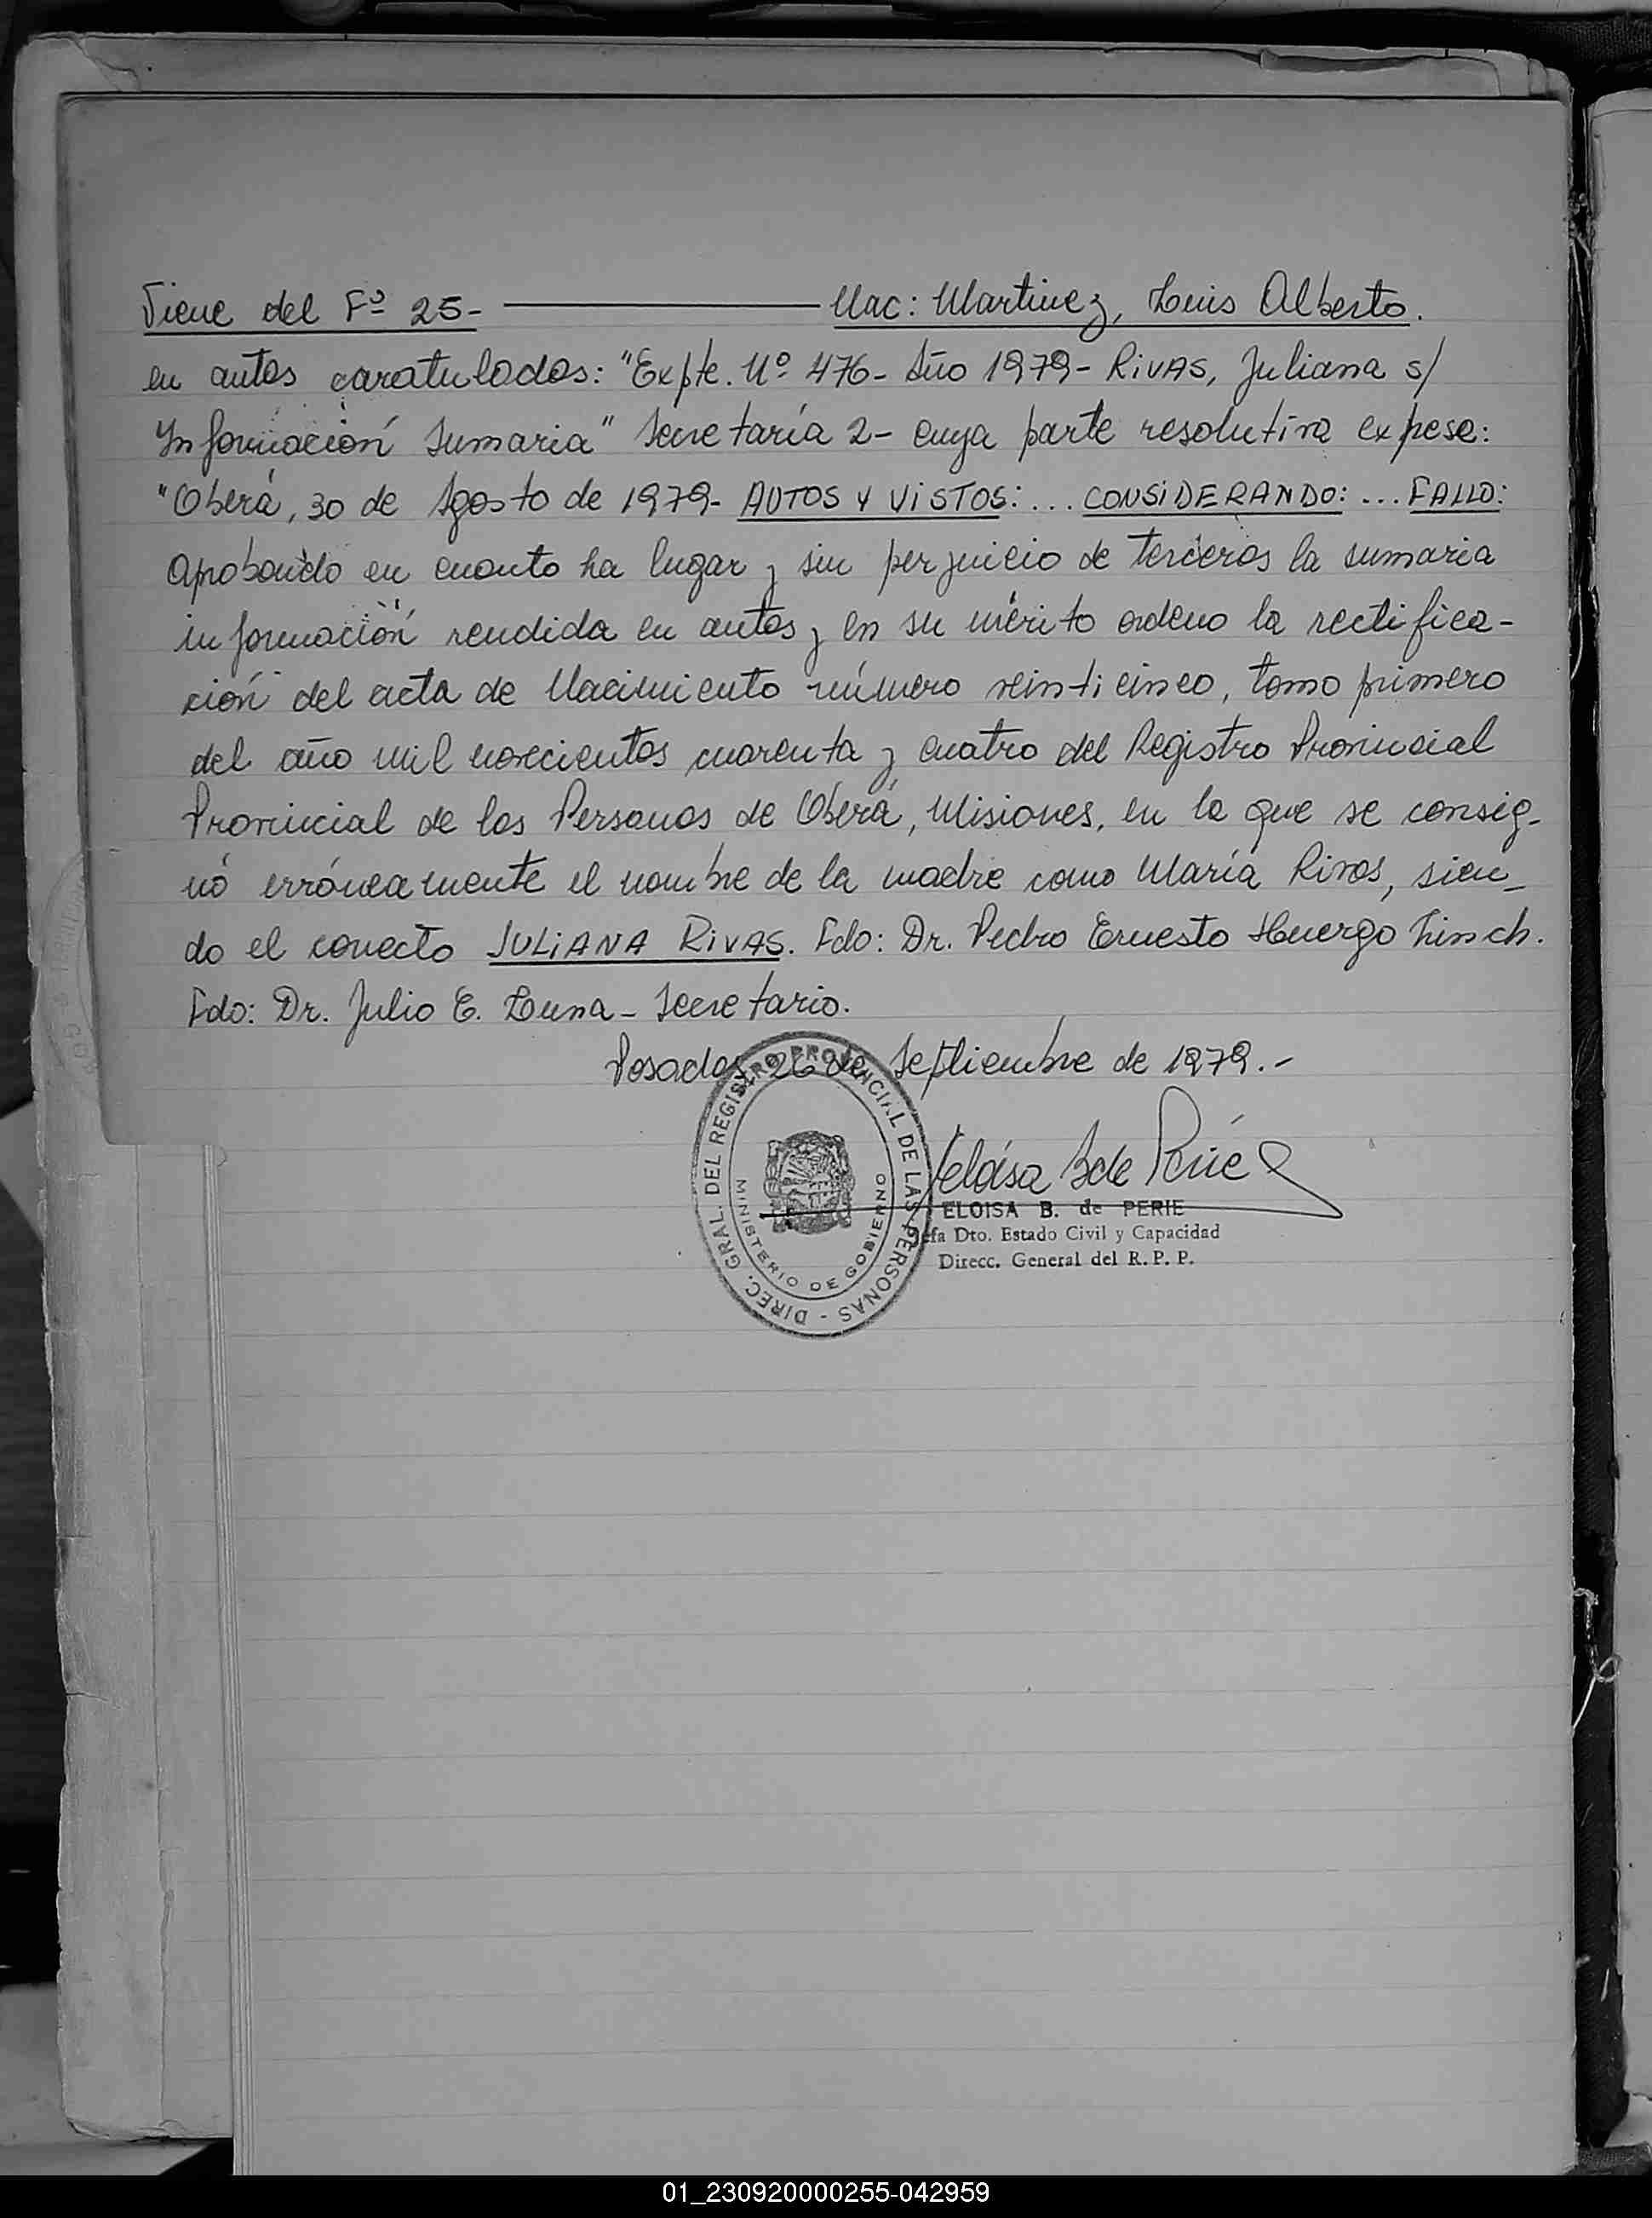 Viene del Fº 25- Nac: Martinez, Luis Alberto.
en autos caratulados: "Expte. Nº 476- Año 1979- RIVAS, Juliana s/
Información Sumaria" Secretaría 2- cuya parte resolutiva expesa:
"Oberá, 30 de Agosto de 1979- AUTOS Y VISTOS: ... CONSIDERANDO: ... FALLO:
Aprobando en cuanto ha lugar y sin perjuicio de terceros la sumaria
información rendida en autos y en su mérito ordeno la rectifica-
ción del acta de Nacimiento número veinticinco, tomo primero
del año mil novecientos cuarenta y cuatro del Registro Provincial
Provincial de las Personas de Oberá, Misiones, en la que se consig-
nó erróneamente el nombre de la madre como María Rivas, sien-
do el correcto JULIANA RIVAS. Fdo: Dr. Pedro Ernesto Huergo Linsch.
Fdo: Dr. Julio E. Luna- Secretario.
Posadas, 26 de Septiembre de 1979.-
DIREC. GRAL. DEL REGISTRO PROVINCIAL DE LAS PERSONAS -
MINISTERIO DE GOBIERNO
Eloisa B de Perié
ELOISA B. de PERIE
Jefa Dto. Estado Civil y Capacidad
Direcc. General del R. P. P.
01_230920000255-042959